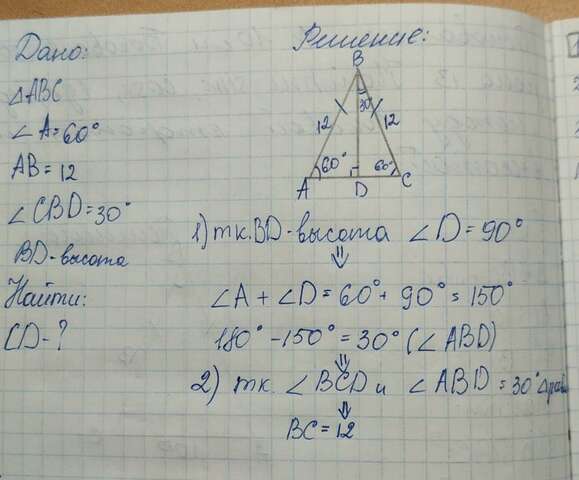 Дано:
△ABC
∠A=60°
AB=12
∠CBD=30°
BD-высота
Найти:
CD-?
Решение:
B
30°
12
12
60°
60°
A
D
C
1) т.к. BD-высота ∠D=90°
⇓
∠A+∠D=60°+90°=150°
180°-150°=30° (∠ABD)
⇓
2) т.к. ∠BCD и ∠ABD=30°
⇓
BC=12